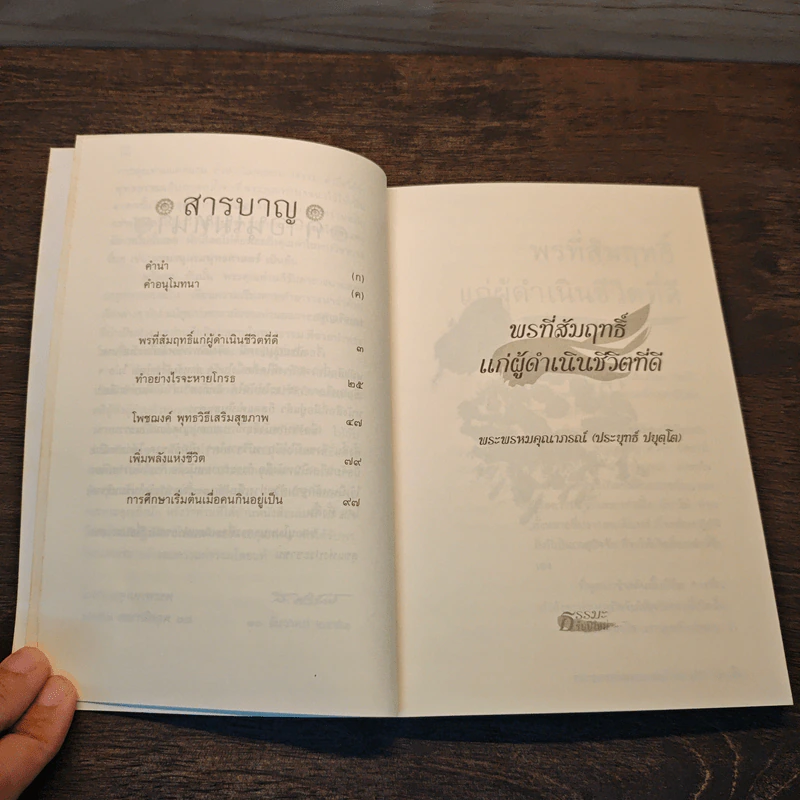 สารบาญ
คำนำ (ก)
คำอนุโมทนา (ค)
พรที่สัมฤทธิ์แก่ผู้ดำเนินชีวิตที่ดี ๓
ทำอย่างไรจะหายโกรธ ๒๕
โพชฌงค์ พุทธวิธีเสริมสุขภาพ ๔๗
เพิ่มพลังแห่งชีวิต ๗๙
การศึกษาเริ่มต้นเมื่อคนกินอยู่เป็น ๙๗
พรที่สัมฤทธิ์
แก่ผู้ดำเนินชีวิตที่ดี
พระพรหมคุณาภรณ์ (ประยุทธ์ ปยุตฺโต)
ธรรมะ